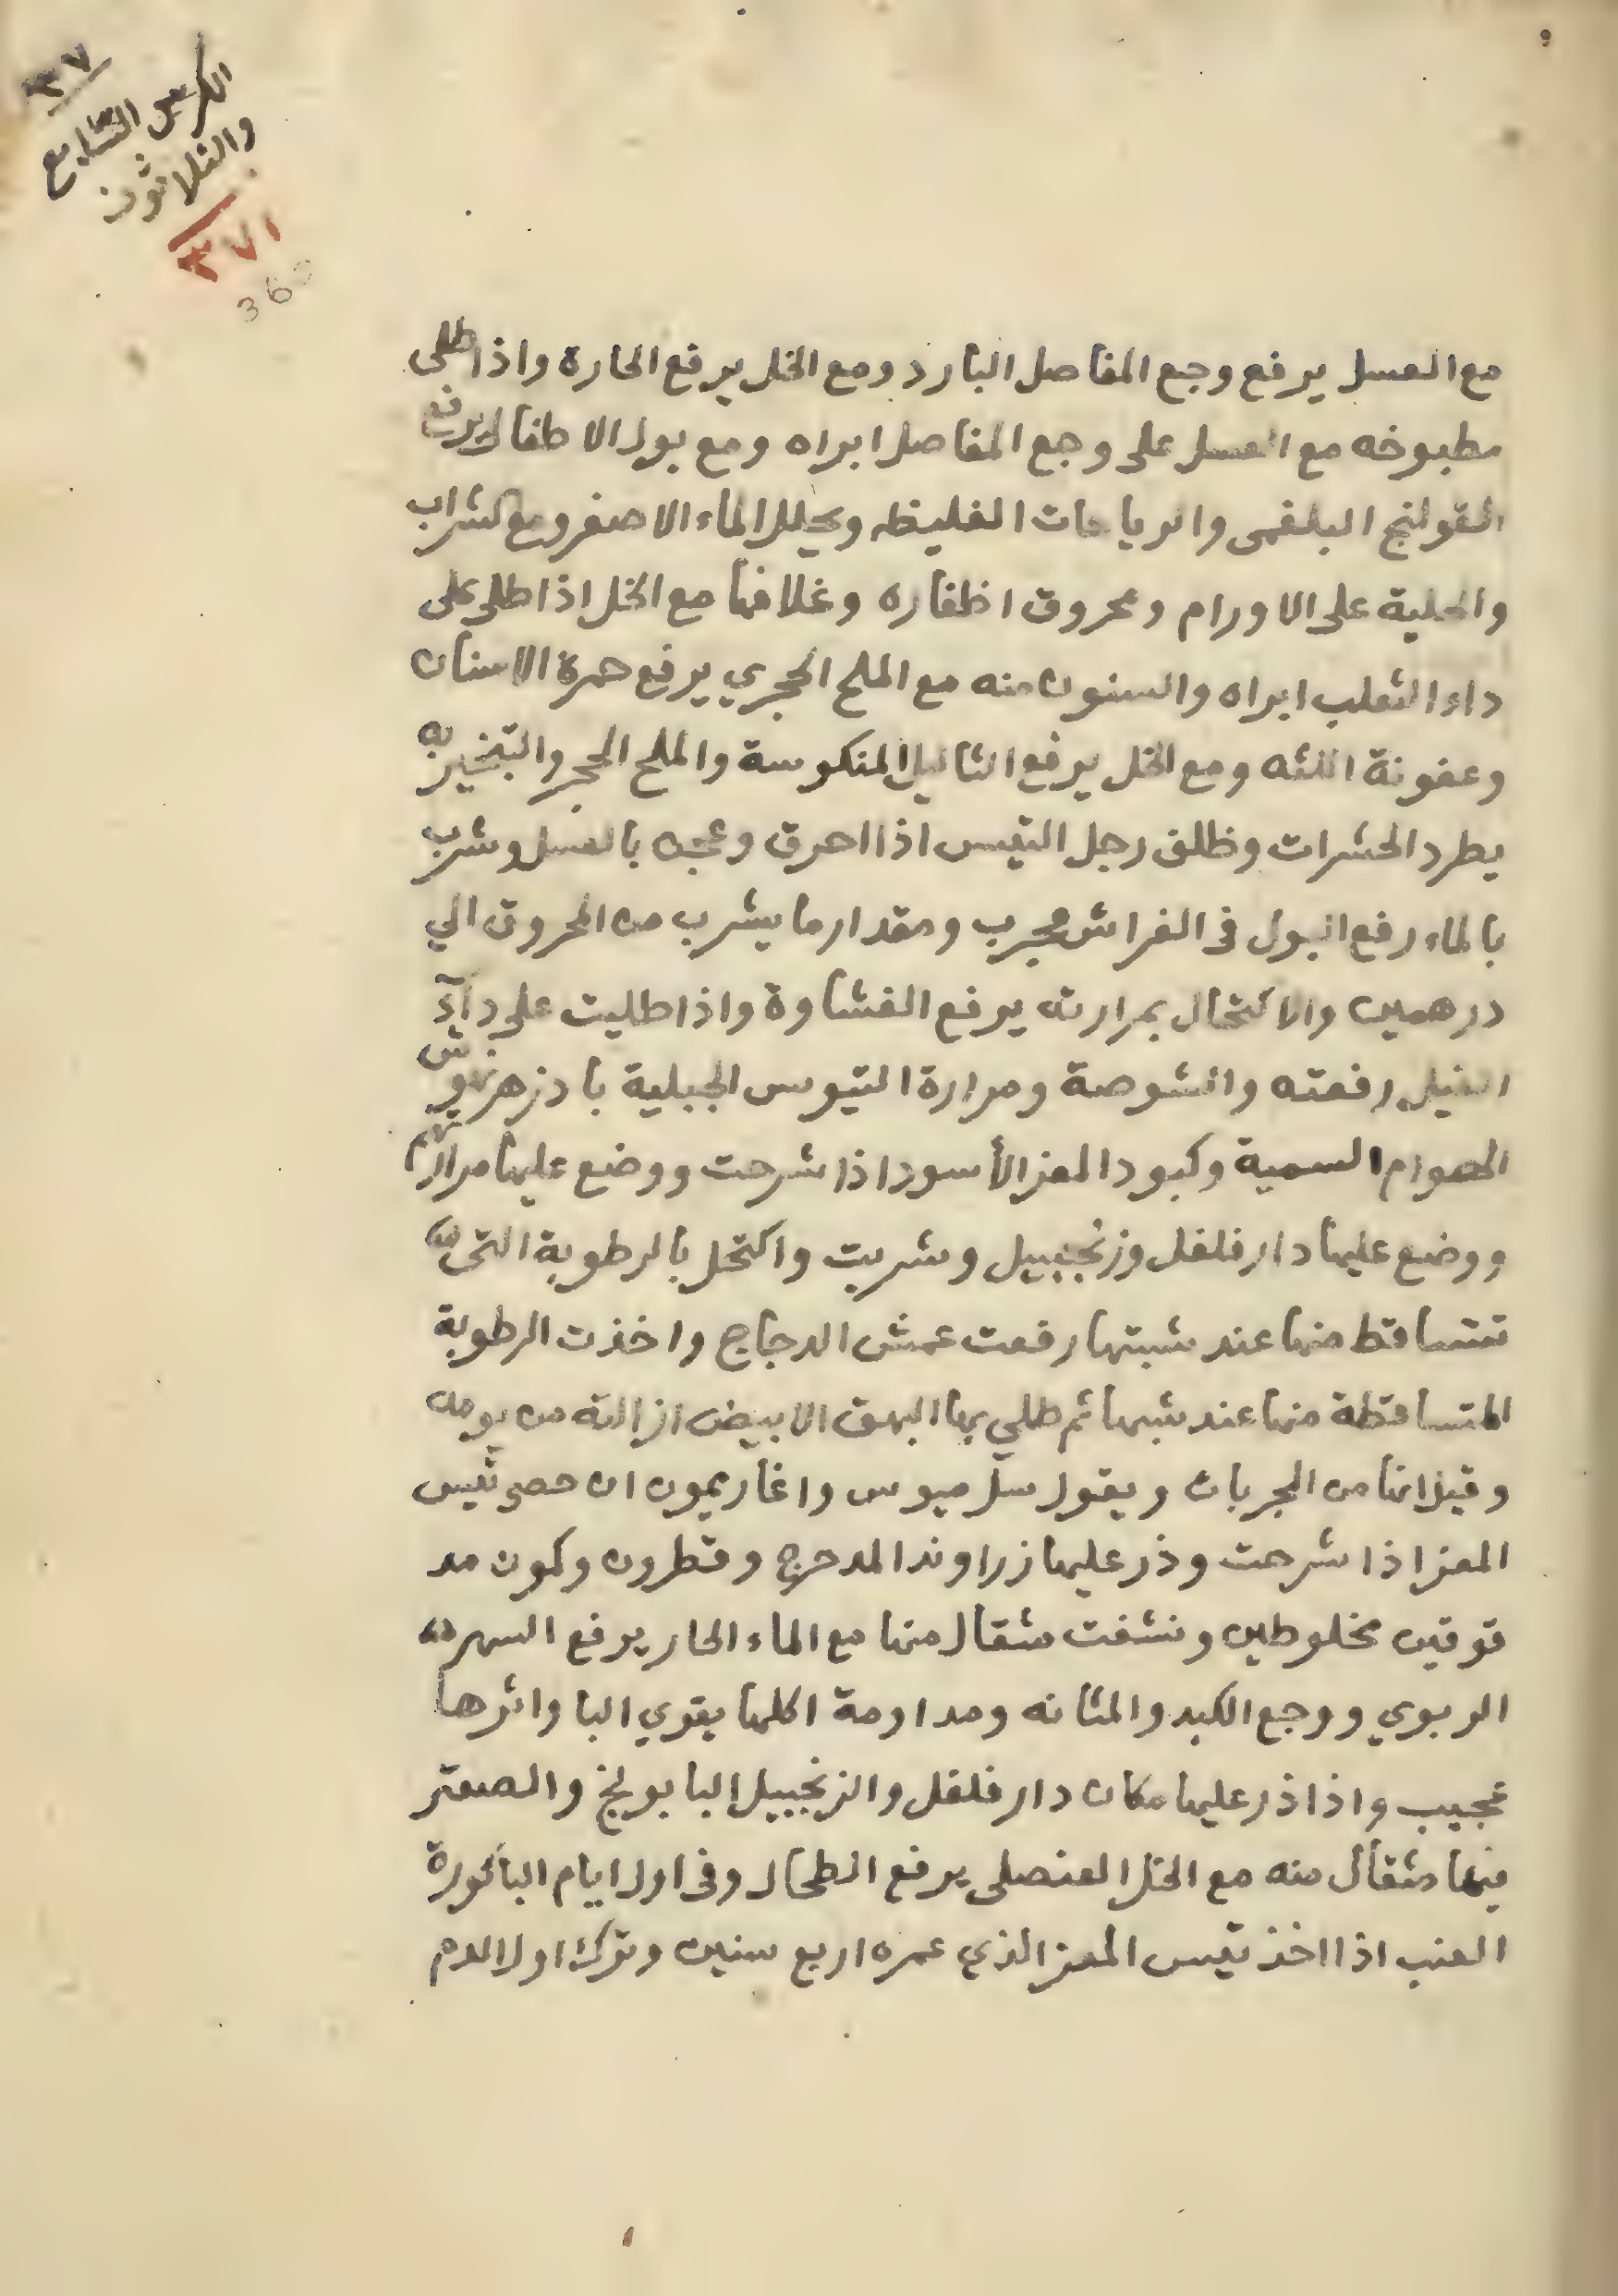 ٣٧
الكرس السابع
والثلاثون
٣٧١
360
مع العسل يرفع وجع المفاصل البارد ومع الخل يرفع الحارة واذا طلى
مطبوخه مع العسل على وجع المفاصل ابراه ومع بول الاطفال يرفع
القولنج البلغمى والرياحات الغليظه ويحلل الماء الاصفر ومع كشراب
والحلية على الاورام ومحروق اظفاره وغلافها مع الخل اذا طلى على
داء الثعلب ابراه والسنون منه مع الملح الحجري يرفع حمرة الاسنان
وعفونة اللثه ومع الخل يرفع الثاليل المنكوسة والملح الحجر والتبخير به
يطرد الحشرات وظلف رجل التيس اذا احرق وعجنه بالعسل وشرب
بالماء رفع البول فى الفراش مجرب ومقدار ما يشرب من المحروق الي
درهمين والاكتحال بمرارته يرفع الغشاوة واذا طليت على داء
الفيل رفعته والشوصة ومرارة التيوس الجبلية بادزهر نهوش
الهوام السمية وكبود المعز الأسود اذا شرحت ووضع عليها مرارتهم
ووضع عليها دار فلفل وزنجبيل وشربت واكتحل بالرطوبة التى
تتساقط منها عند شيتها رفعت عمش الدجاج واخذت الرطوبة
المتساقطة منها عند شيها ثم طلي بها البهق الابيض ازالته من يومه
وقيل انها من المجربات ويقول سلرميوس واغاريمون ان حصى تيس
المعز اذا شرحت وذر عليها زراوند المدحرج وقطرون وكمون مد
قوقين مخلوطين ونشفت مثقال منها مع الماء الحار يرفع السهر
الربوي ووجع الكبد والمثانه ومداومة اكلها يقوي البا واثرها
عجيب واذا ذر عليها مكان دار فلفل والزنجبيل البابونج والصعتر
فيها مثقال منه مع الخل العنصلى يرفع الطحال وفى اول ايام الباكورة
العنب اذا اخذ تيس المعز الذي عمره اربع سنين وترك اولا لدم